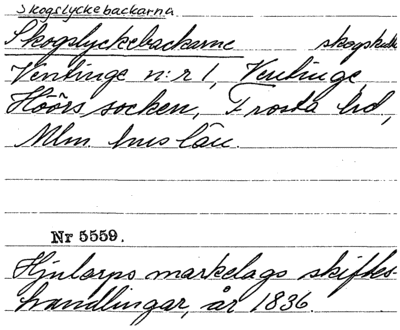 Skogslyckebackarna
Skogslyckebackarne skogskulle
Ventinge n:r 1, Ventinge
Höörs socken, Frosta hd,
Mlm. hus län.
Nr 5559.
Hinlarps markelags skiftes-
handlingar, år 1836.